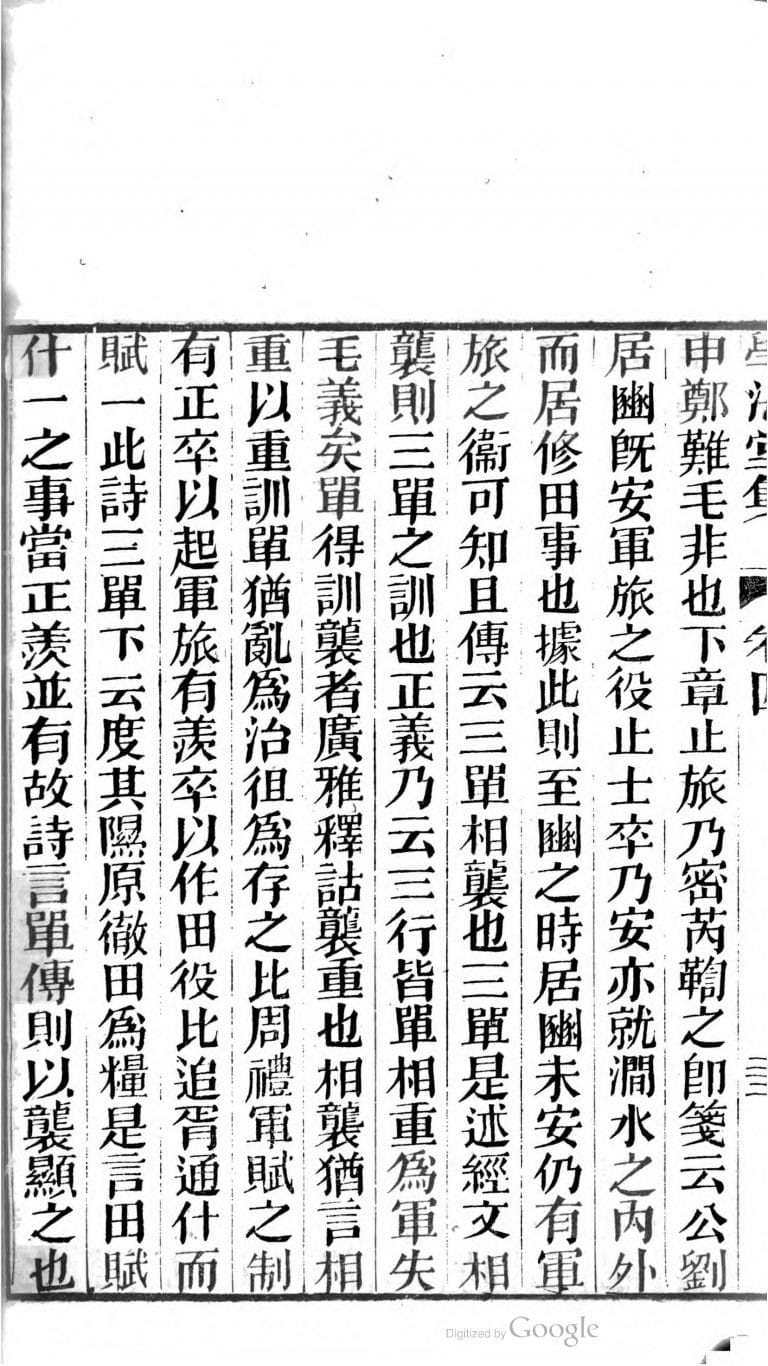 學海堂集 卷四 三
申鄭難毛非也下章止旅乃密芮鞫之卽箋云公劉
居豳旣安軍旅之役止士卒乃安亦就澗水之內外
而居修田事也據此則至豳之時居豳未安仍有軍
旅之衞可知且傳云三單相襲也三單是述經文相
襲則三單之訓也正義乃云三行皆單相重爲軍失
毛義矣單得訓襲者廣雅釋詁襲重也相襲猶言相
重以重訓單猶亂爲治徂爲存之比周禮軍賦之制
有正卒以起軍旅有羨卒以作田役比追胥通什而
賦一此詩三單下云度其隰原徹田爲糧是言田賦
什一之事當正羨並有故詩言單傳則以襲顯之也
Digitized by Google